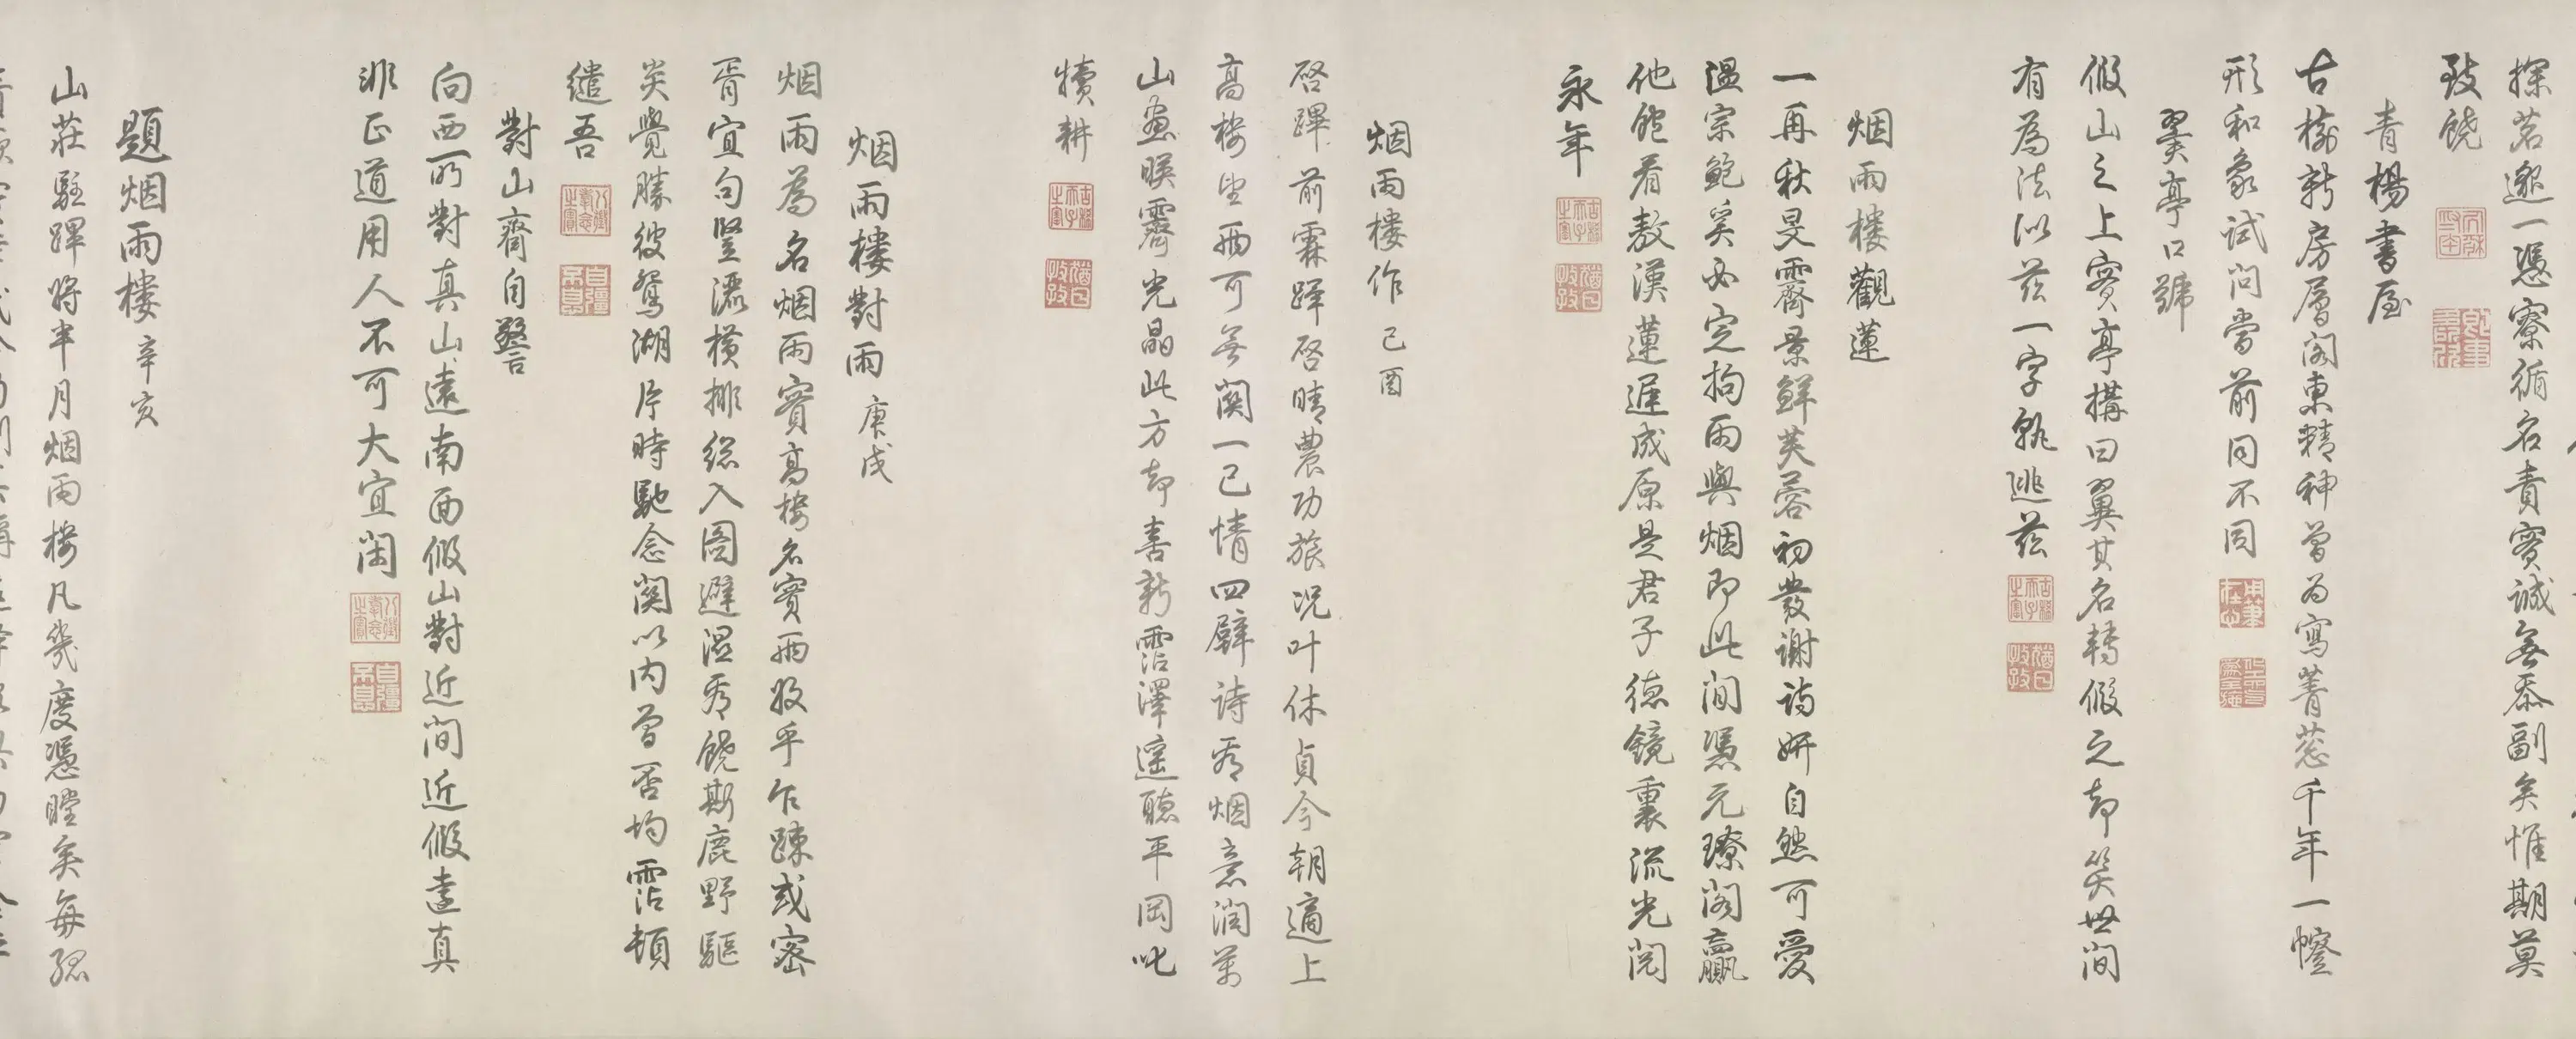 探茗邀一憑寮循名責實誠無忝副矣惟期莫
致饒
青楊書屋
古檞新房層閣東精神曾為寫菁葱千年一㡧
形和象試問當前同不同
翼亭口號
假山之上實亭構曰翼其名轉假之却笑世間
有為法似茲一字孰逃茲
烟雨樓觀蓮
一再秋旻霽景鮮芙蓉初發謝詩妍自然可愛
溫宗鮑奚必定拘雨與烟即此間憑元暸閣贏
他飽看敖漢蓮遲成原是君子德鏡裏流光閱
永年
烟雨樓作 己酉
啓蹕前霖蹕啓晴農功旅況叶休貞今朝適上
高樓坐雨可無關一己情四壁詩秀烟意潤萬
山畫暎霽光晶此方却喜新霑澤遙聽平岡叱
犢耕
烟雨樓對雨 庚戌
烟雨為名烟雨實高樓名實兩投乎乍疎或密
胥宜句豎灑橫排總入圖避濕秀饒斯鹿野驅
炎覺勝彼鴛湖片時馳念關以内曾否均霑頓
繾吾
對山齋自警
向西所對真山遠南面假山對近間近假遠真
非正道用人不可大宜閑
題烟雨樓 辛亥
山莊駐蹕將半月烟雨樓凡幾度憑瞠矣每孫